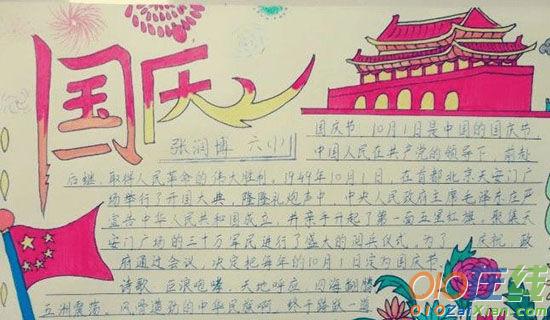 国庆
张润博 六(1)
国庆节 10月1日是中国的国庆节,
中国人民在共产党的领导下,前赴
后继,取得人民革命的伟大胜利,1949年10月1日,在首都北京天安门广
场举行了开国大典,隆隆礼炮声中,中央人民政府主席毛泽东庄严
宣告中华人民共和国成立,并亲手升起了第一面五星红旗,聚集天
安门广场的三十万军民进行了盛大的阅兵仪式,为了 庆祝,政
府通过会议,决定把每年的10月1日定为国庆节.
诗歌 巨浪咆哮,天地呼应 四海翻腾
五洲震荡,风雷激励的中华民族啊 终于踏破一道
在线
ZaiXian.com